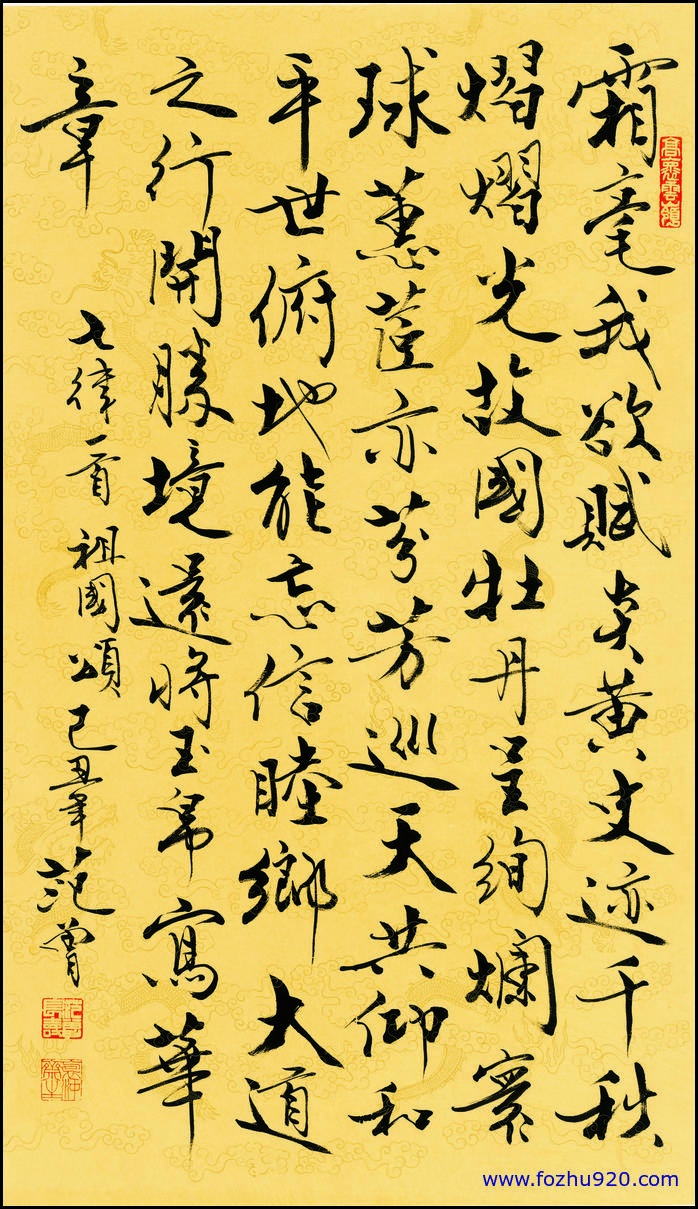 霜毫我欲賦炎黄史迹千秋
熠熠光故國牡丹呈絢爛寰
球蕙茝亦芬芳巡天共仰和
平世俯地能忘信睦鄉大道
之行開勝境還將玉帛寫華
章
七律一首 祖國頌 己丑年 范曾
www.fozhu920.com